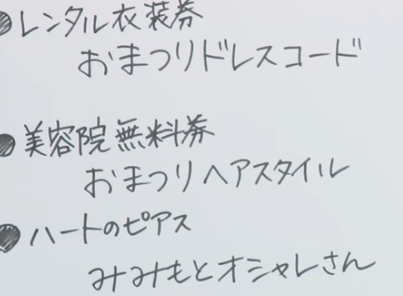 ●レンタル衣装券
おまつりドレスコード
●美容院無料券
おまつりヘアスタイル
●ハートのピアス
みみもとオシャレさん